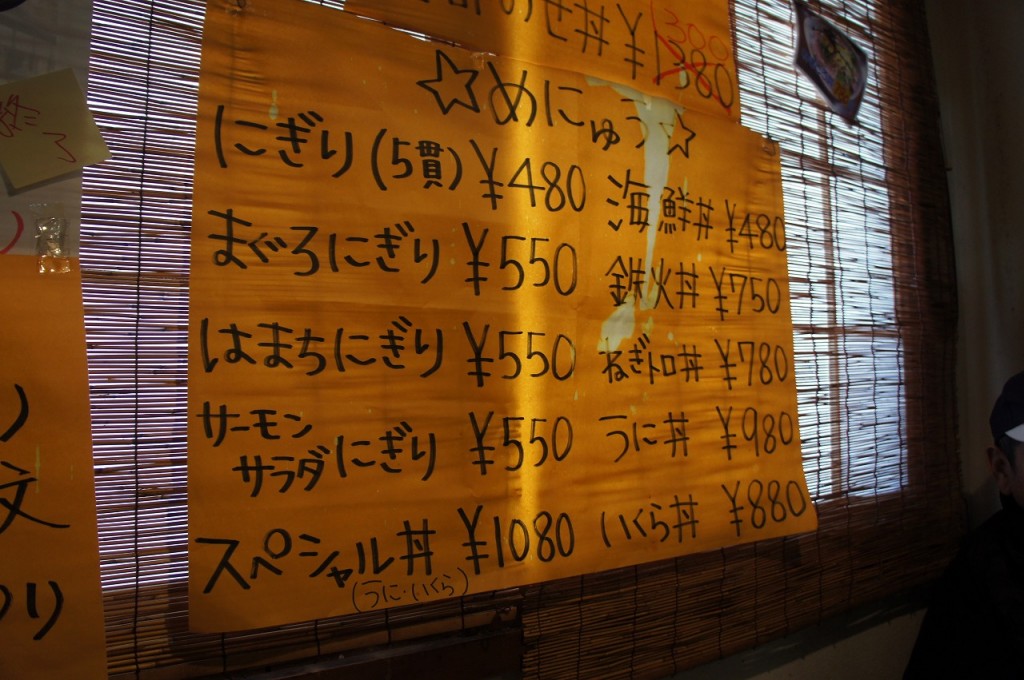 のせ丼 ¥1380
1300
☆めにゅう☆
にぎり(5貫) ¥480
まぐろにぎり ¥550
はまちにぎり ¥550
サーモン
サラダにぎり ¥550
スペシャル丼 ¥1080
(うに・いくら)
海鮮丼 ¥480
鉄火丼 ¥750
ねぎトロ丼 ¥780
うに丼 ¥980
いくら丼 ¥880
文
り